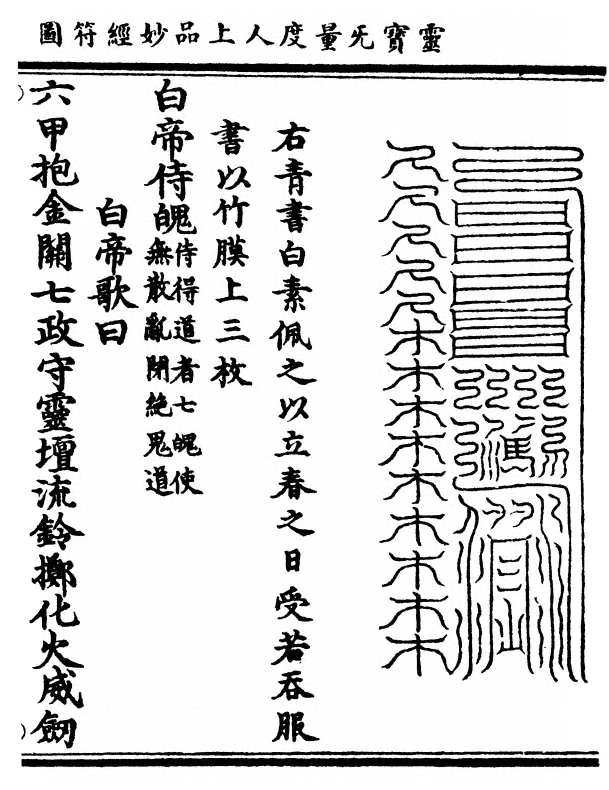 靈寶无量度人上品妙經符圖
右青書白素佩之以立春之日受若吞服
書以竹膜上三枚
白帝侍魄
侍得道者七魄使
無散亂閉絕鬼道
白帝歌曰
六甲抱金關七政守靈壇流鈴擲化火威劒